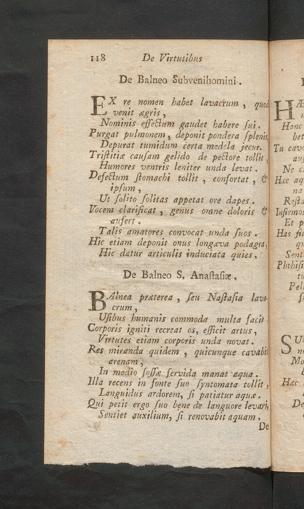 118 De Virtutibus
De Balneo Subvenihomini.
EX re nomen habet lavacrum,
venit ægris,
Nominis effectum gaudet habere sui.
Purgat pulmonem, deponit pondera splenis
Depurat tumidum certa medela jecur.
Tristitiæ causam gelido de pectore tollit,
Humores ventris leniter unda levat.
Defectum stomachi tollit, confortat, &
ipsum,
Ut solito solitas appetat ore dapes.
Vocem clarificat, genus omne doloris &
aufert.
Talis amatores convocat unda suos.
Hic etiam deponit onus longæva podagra,
Hic datur articulis inductata quies.
De Balneo S. Anastasiæ.
BAlnea præterea, seu Nastasia lava-
crum,
Usibus humanis commoda multa facit
Corporis igniti recreat os, efficit artus,
Virtutes etiam corporis unda novat.
Res miranda quidem, quicunque cavabit
arenam,
In modio fossæ fervida manat aqua.
Illa recens in fonte suo syntomata tollit,
Languidus ardorem, si patiatur aquæ.
Qui petit ergo suo bene de languore levari,
Sentiet auxilium, si renovabit aquam.
De